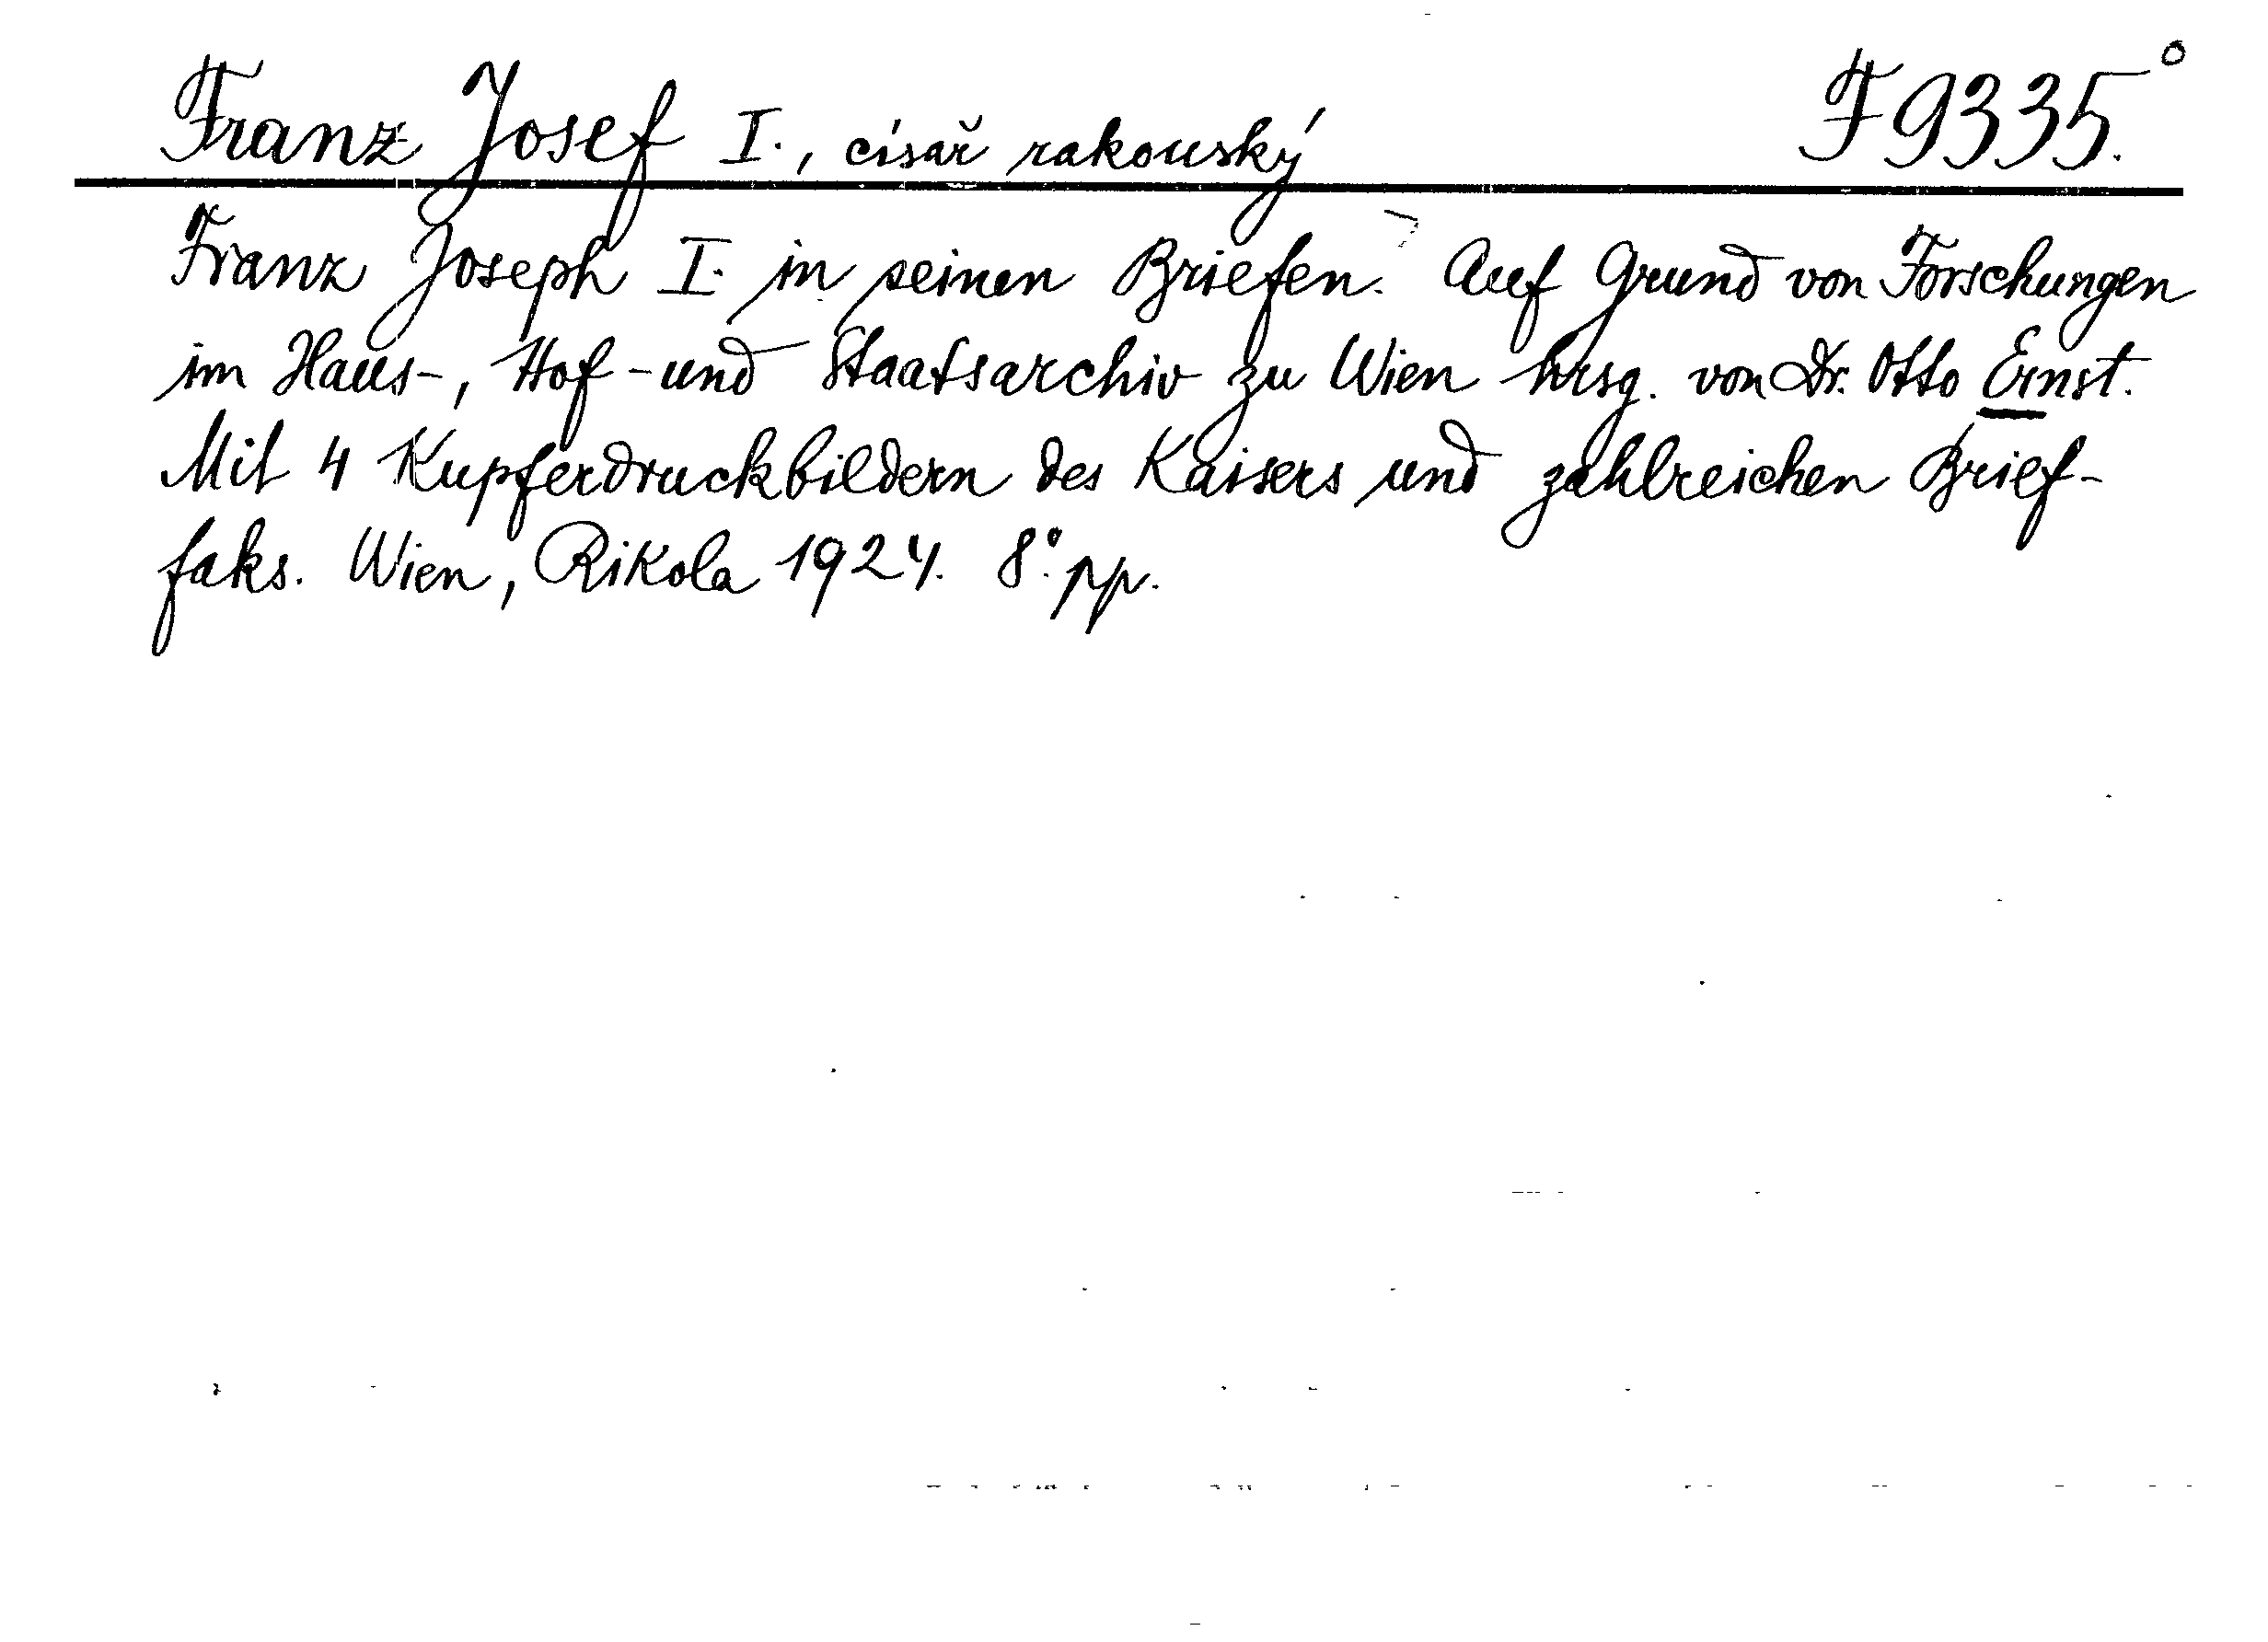 Franz Josef I., císař rakouský F 9335.°
Franz Joseph I. in seinen Briefen. Auf Grund von Forschungen
im Haus-, Hof- und Staatsarchiv zu Wien hrsg. von Dr. Otto Ernst.
Mit 4 Kupferdruckbildern des Kaisers und zahlreichen Brief-
faks. Wien, Rikola 1924. 8°. pp.